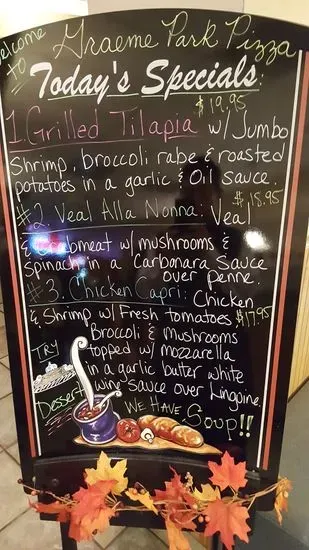 Welcome
TO Graeme Park Pizza
Today's Specials:
$19.95
1. Grilled Tilapia w/ Jumbo
Shrimp, broccoli rabe & roasted
potatoes in a garlic & Oil sauce.
$18.95
#2. Veal Alla Nonna: Veal
& Crabmeat w/ mushrooms &
spinach in a Carbonara Sauce
over penne.
#3. Chicken Capri: Chicken
& Shrimp w/ Fresh tomatoes $17.95
Broccoli & Mushrooms
TRY
topped w/ mozzarella
in a garlic butter white
Dessert
wine sauce over Linguine.
WE HAVE SOUP!!